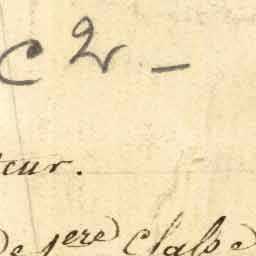 C 2 -
eur.
de 1ere classe